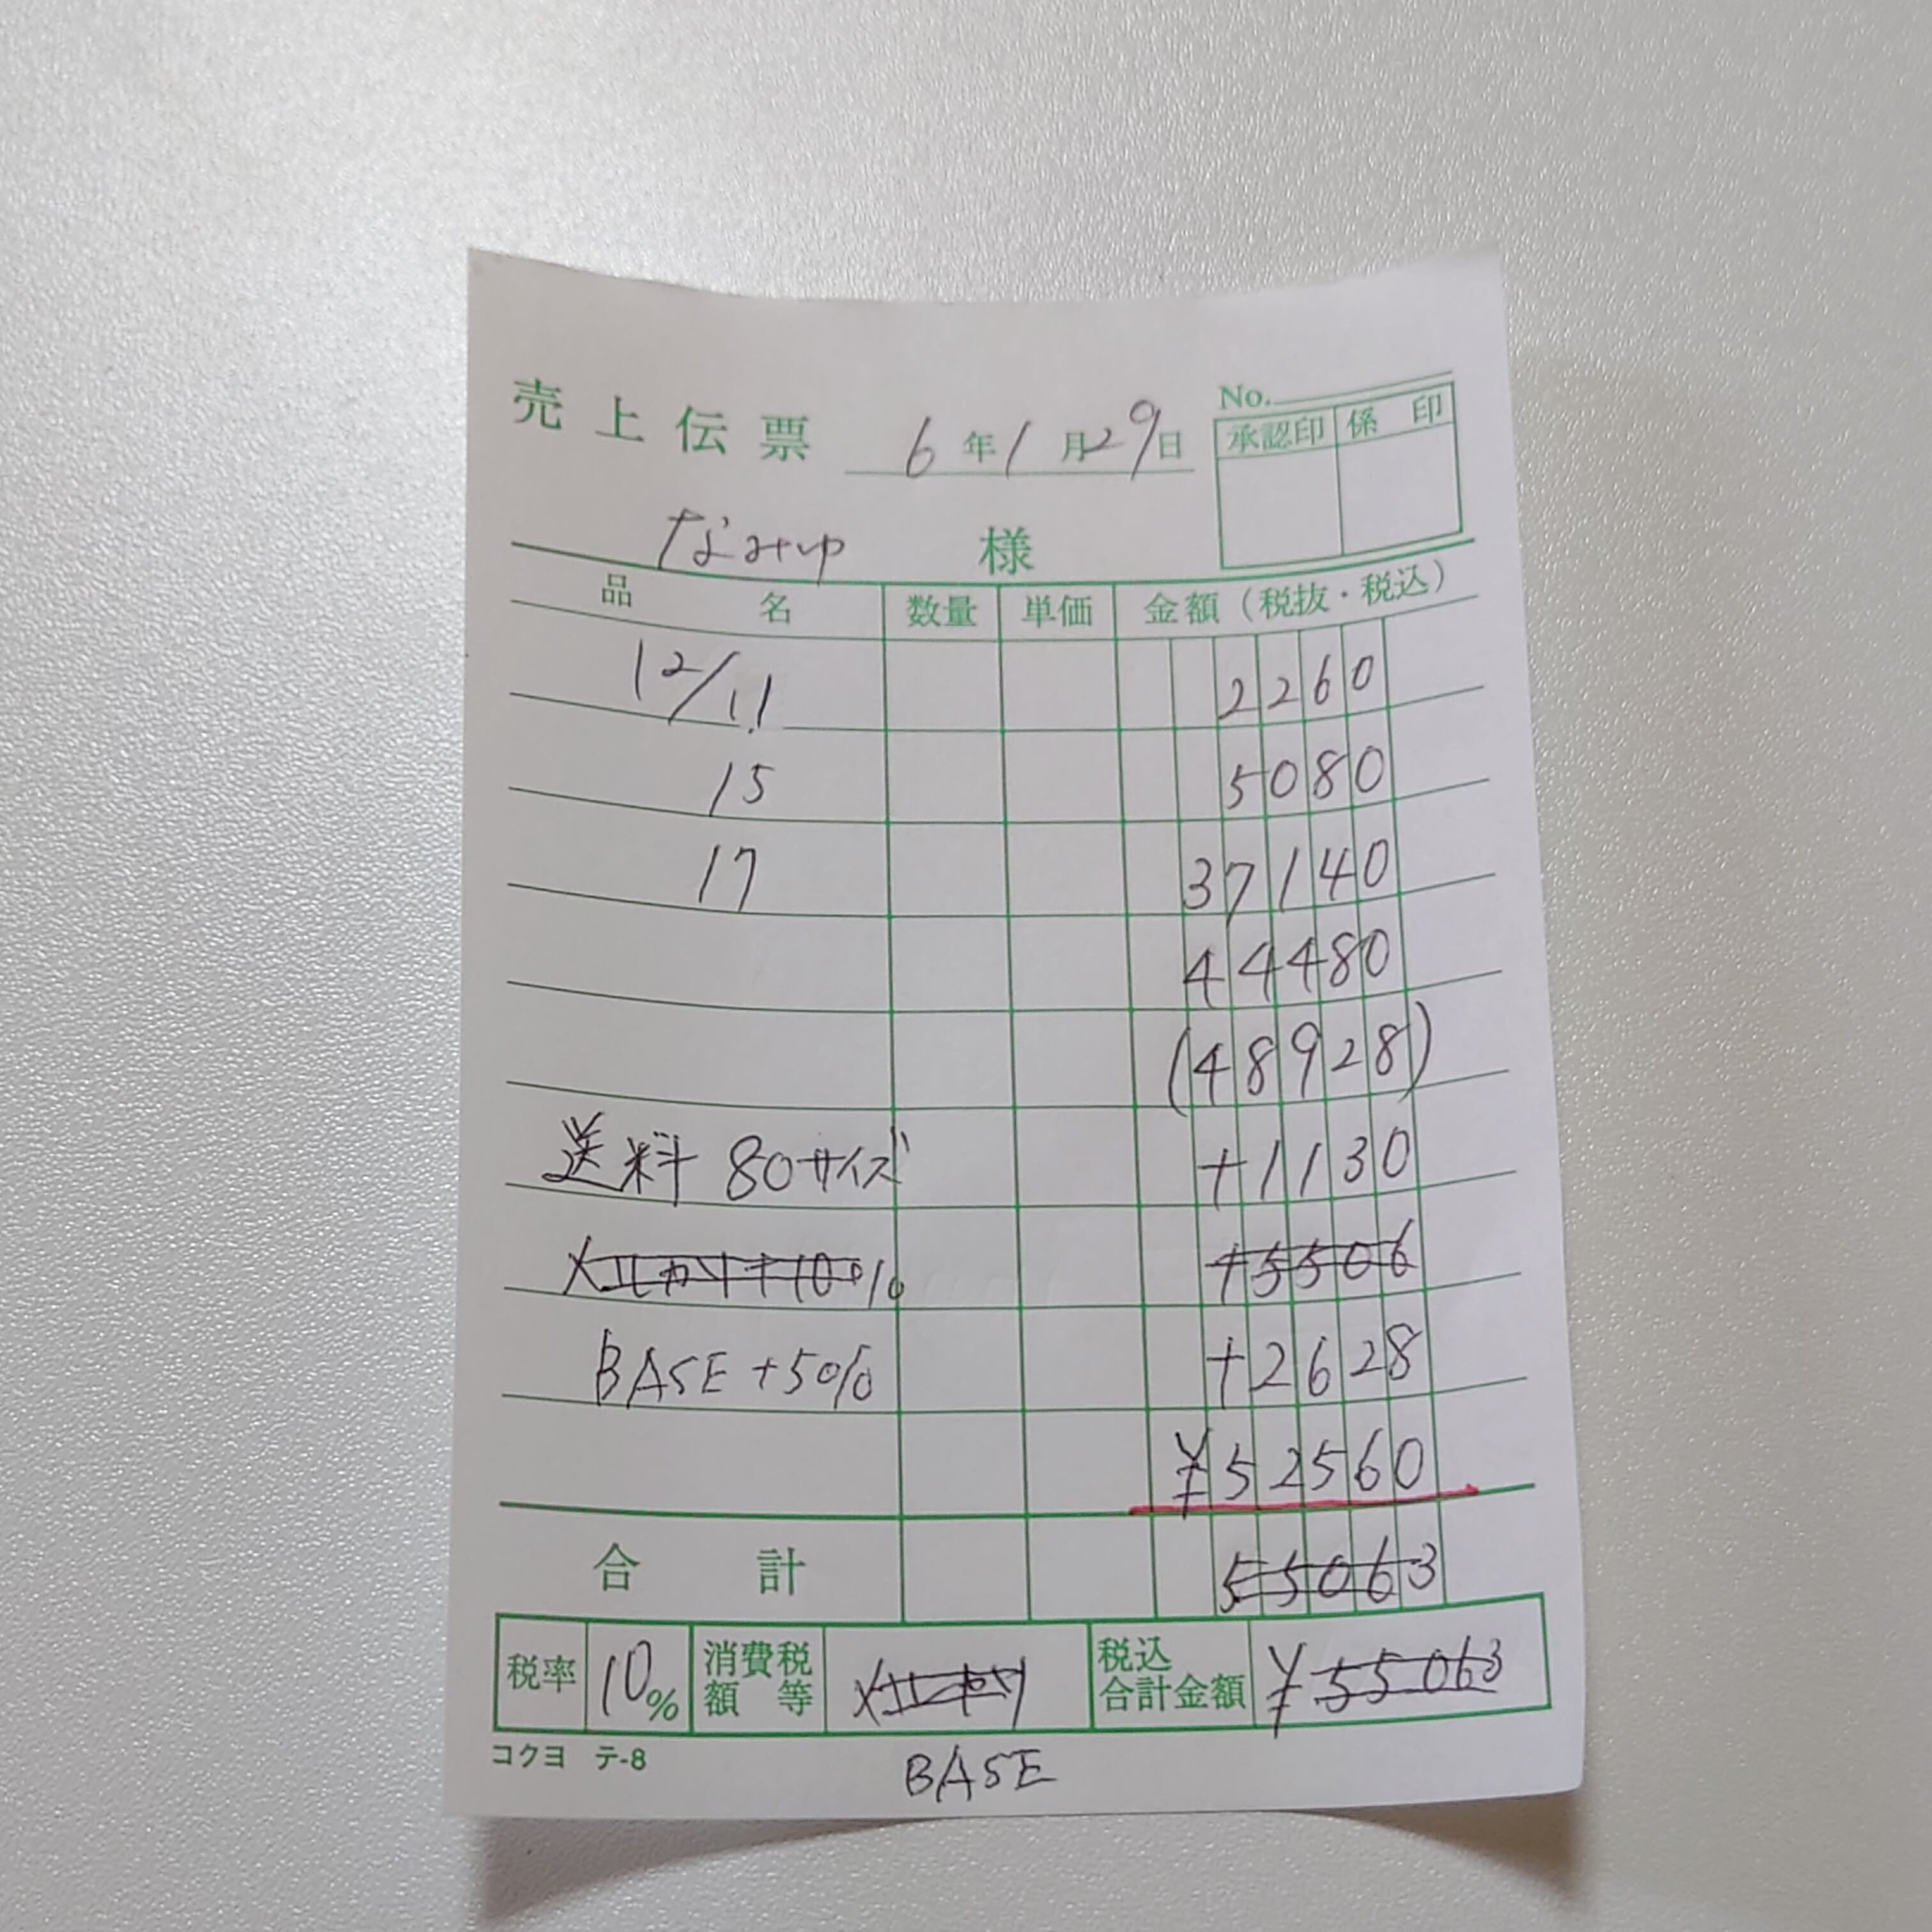 No.
売上伝票 6年1月29日
承認印 係印
なみゆ 様
品名 数量 単価 金額(税抜・税込)
12/11 2260
15 5080
17 37140
44480
(48928)
送料 80サイズ +1130
メルカリ+10% +5506
BASE+5% +2628
¥52560
合計 55063
税率 10% 消費税額等 メルカリ 税込合計金額 ¥55063
コクヨ テ-8
BASE